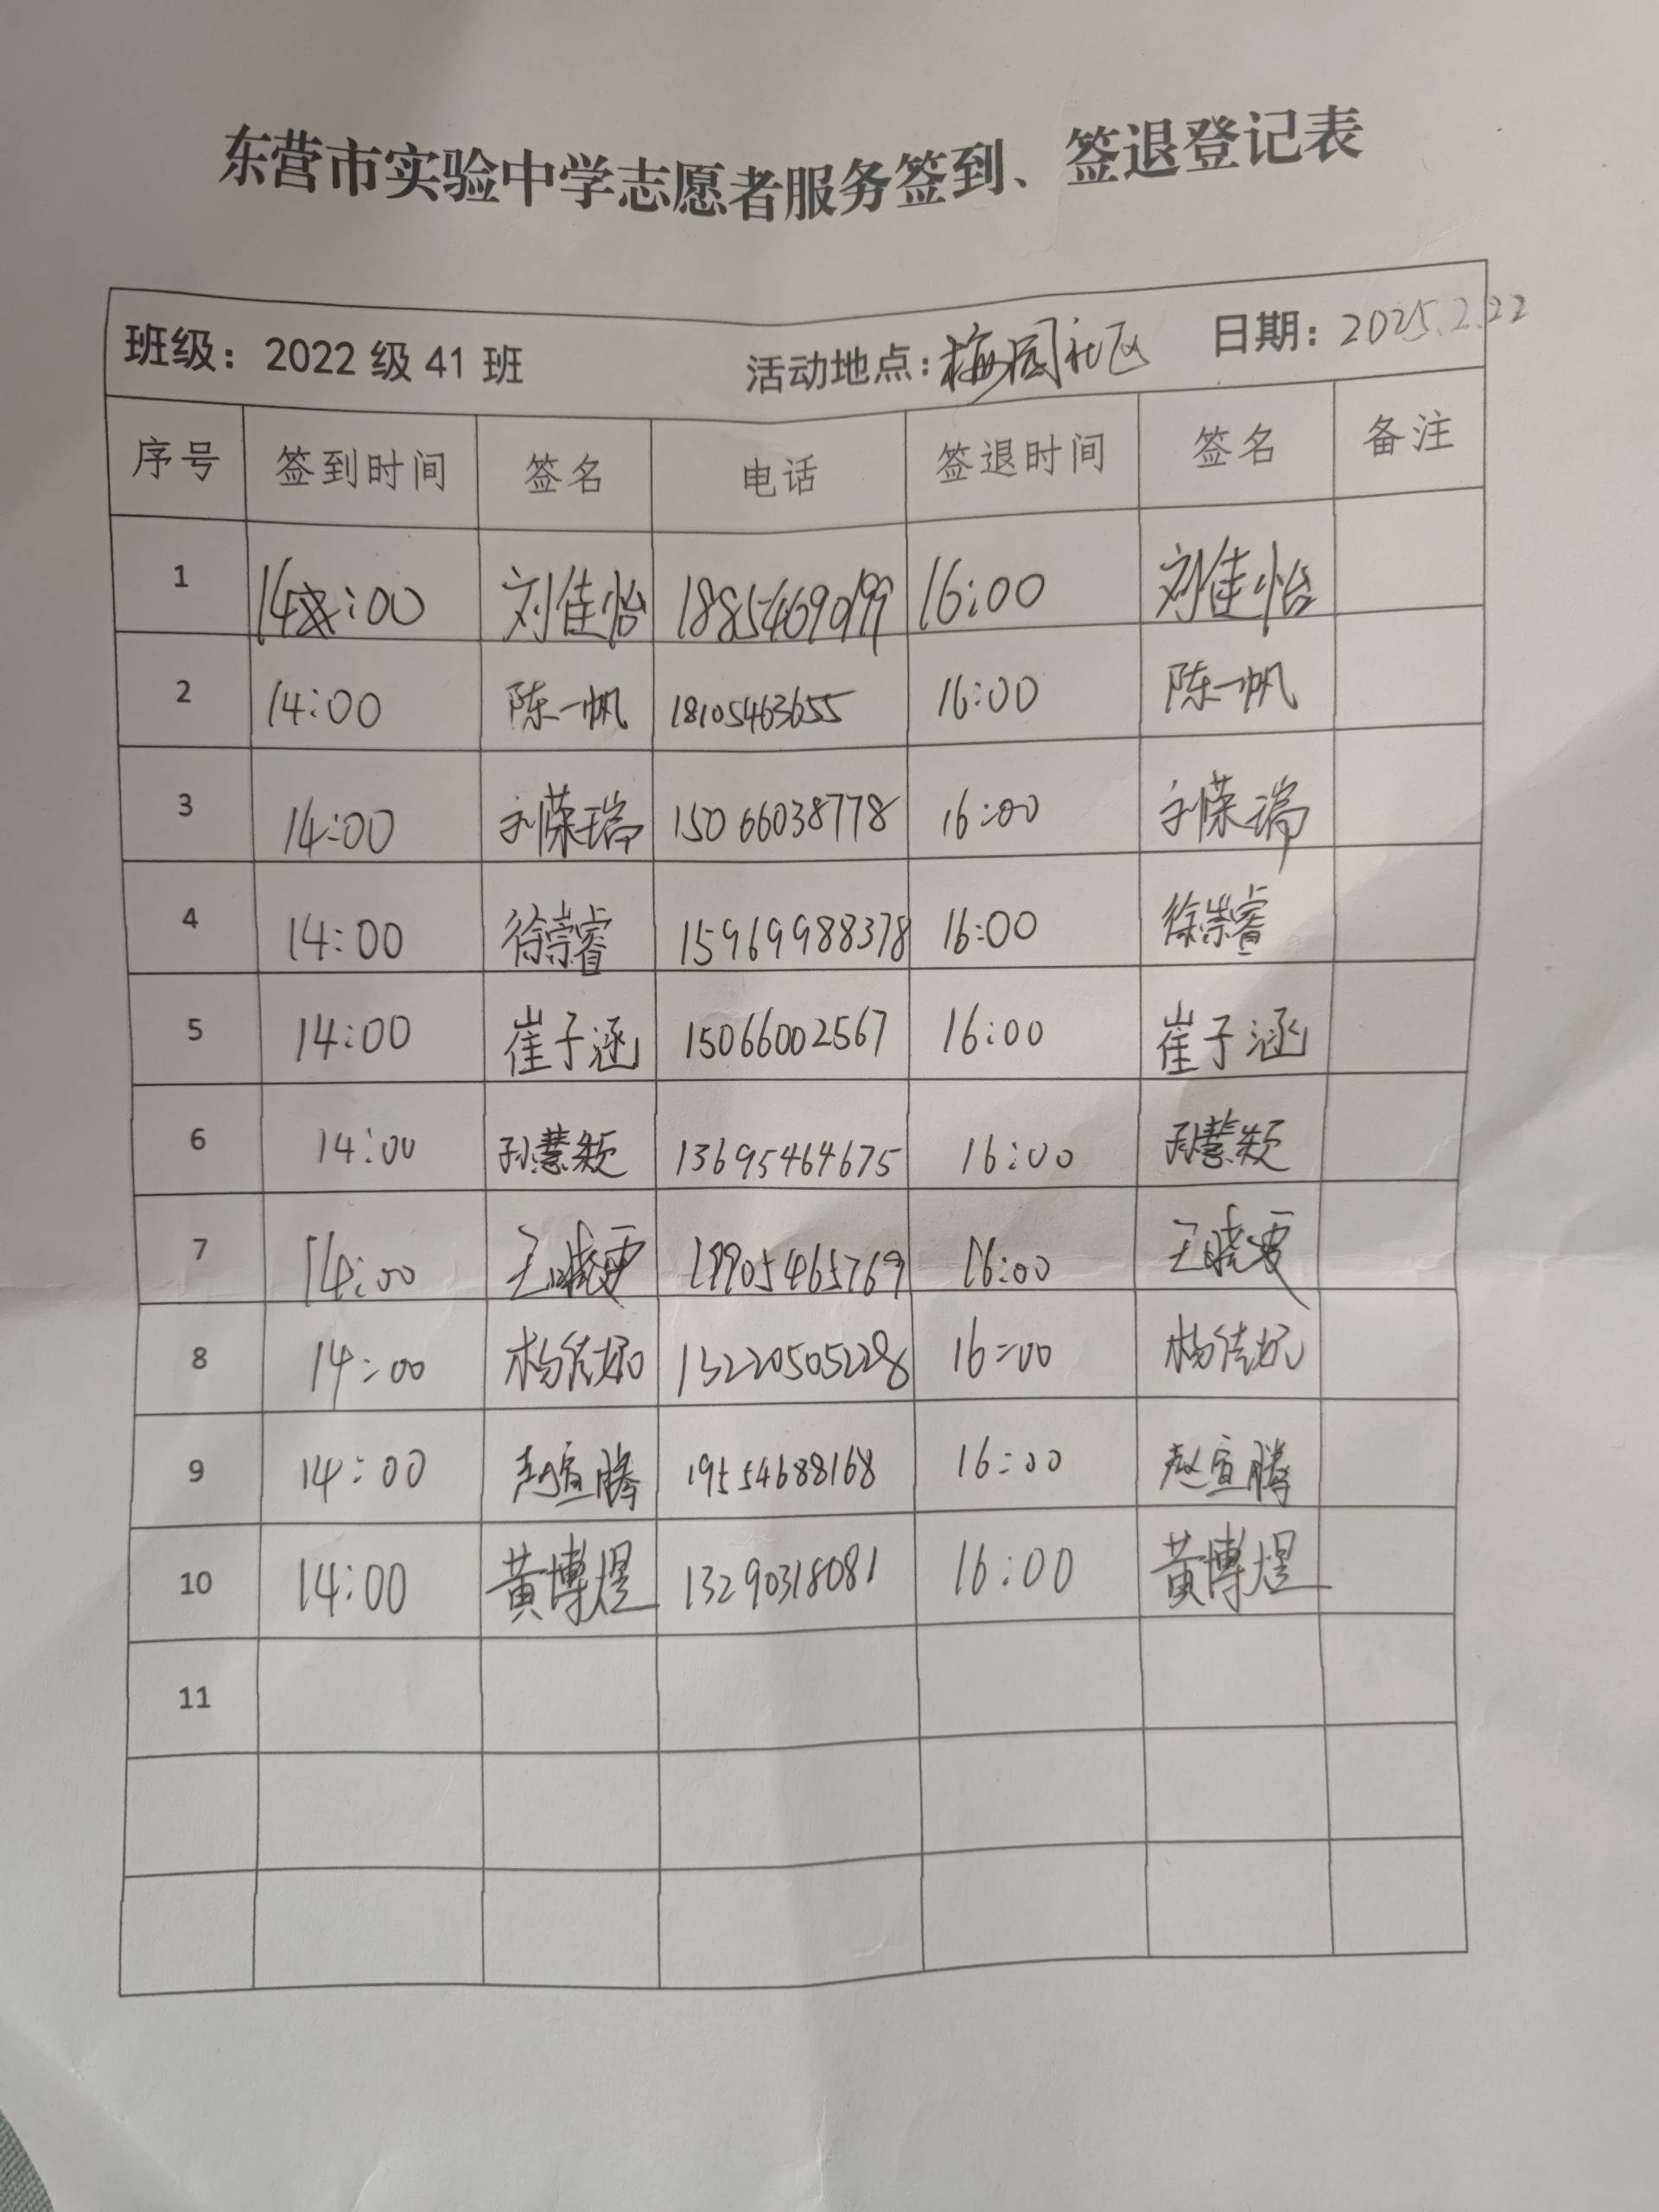 东营市实验中学志愿者服务签到、签退登记表
班级：2022级41班 活动地点：梅园社区 日期：2025.2.22
序号 签到时间 签名 电话 签退时间 签名 备注
1 14:00 刘佳怡 18854690199 16:00 刘佳怡
2 14:00 陈一帆 18105463655 16:00 陈一帆
3 14:00 刘荣瑞 15066038778 16:00 刘荣瑞
4 14:00 徐崇睿 15969988378 16:00 徐崇睿
5 14:00 崔子涵 15066002567 16:00 崔子涵
6 14:00 孙慧颖 13695464675 16:00 孙慧颖
7 14:00 王晓雯 19905465769 16:00 王晓雯
8 14:00 13220505228 16:00
9 14:00 赵宣腾 19554688168 16:00 赵宣腾
10 14:00 黄博煜 13290318081 16:00 黄博煜
11